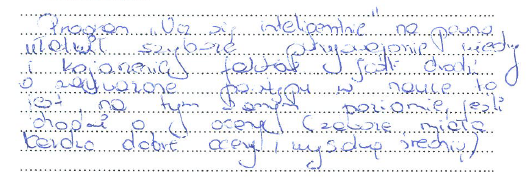 Program "Ucz się inteligentnie" na pewno
ułatwił szybsze przyswajanie wiedzy
i kojarzenie faktów. Jeśli chodzi
o zauważone postępy w nauce to
jest na tym samym poziomie, jeśli
chodzi o oceny (zawsze miała
bardzo dobre oceny i wysoką średnią)